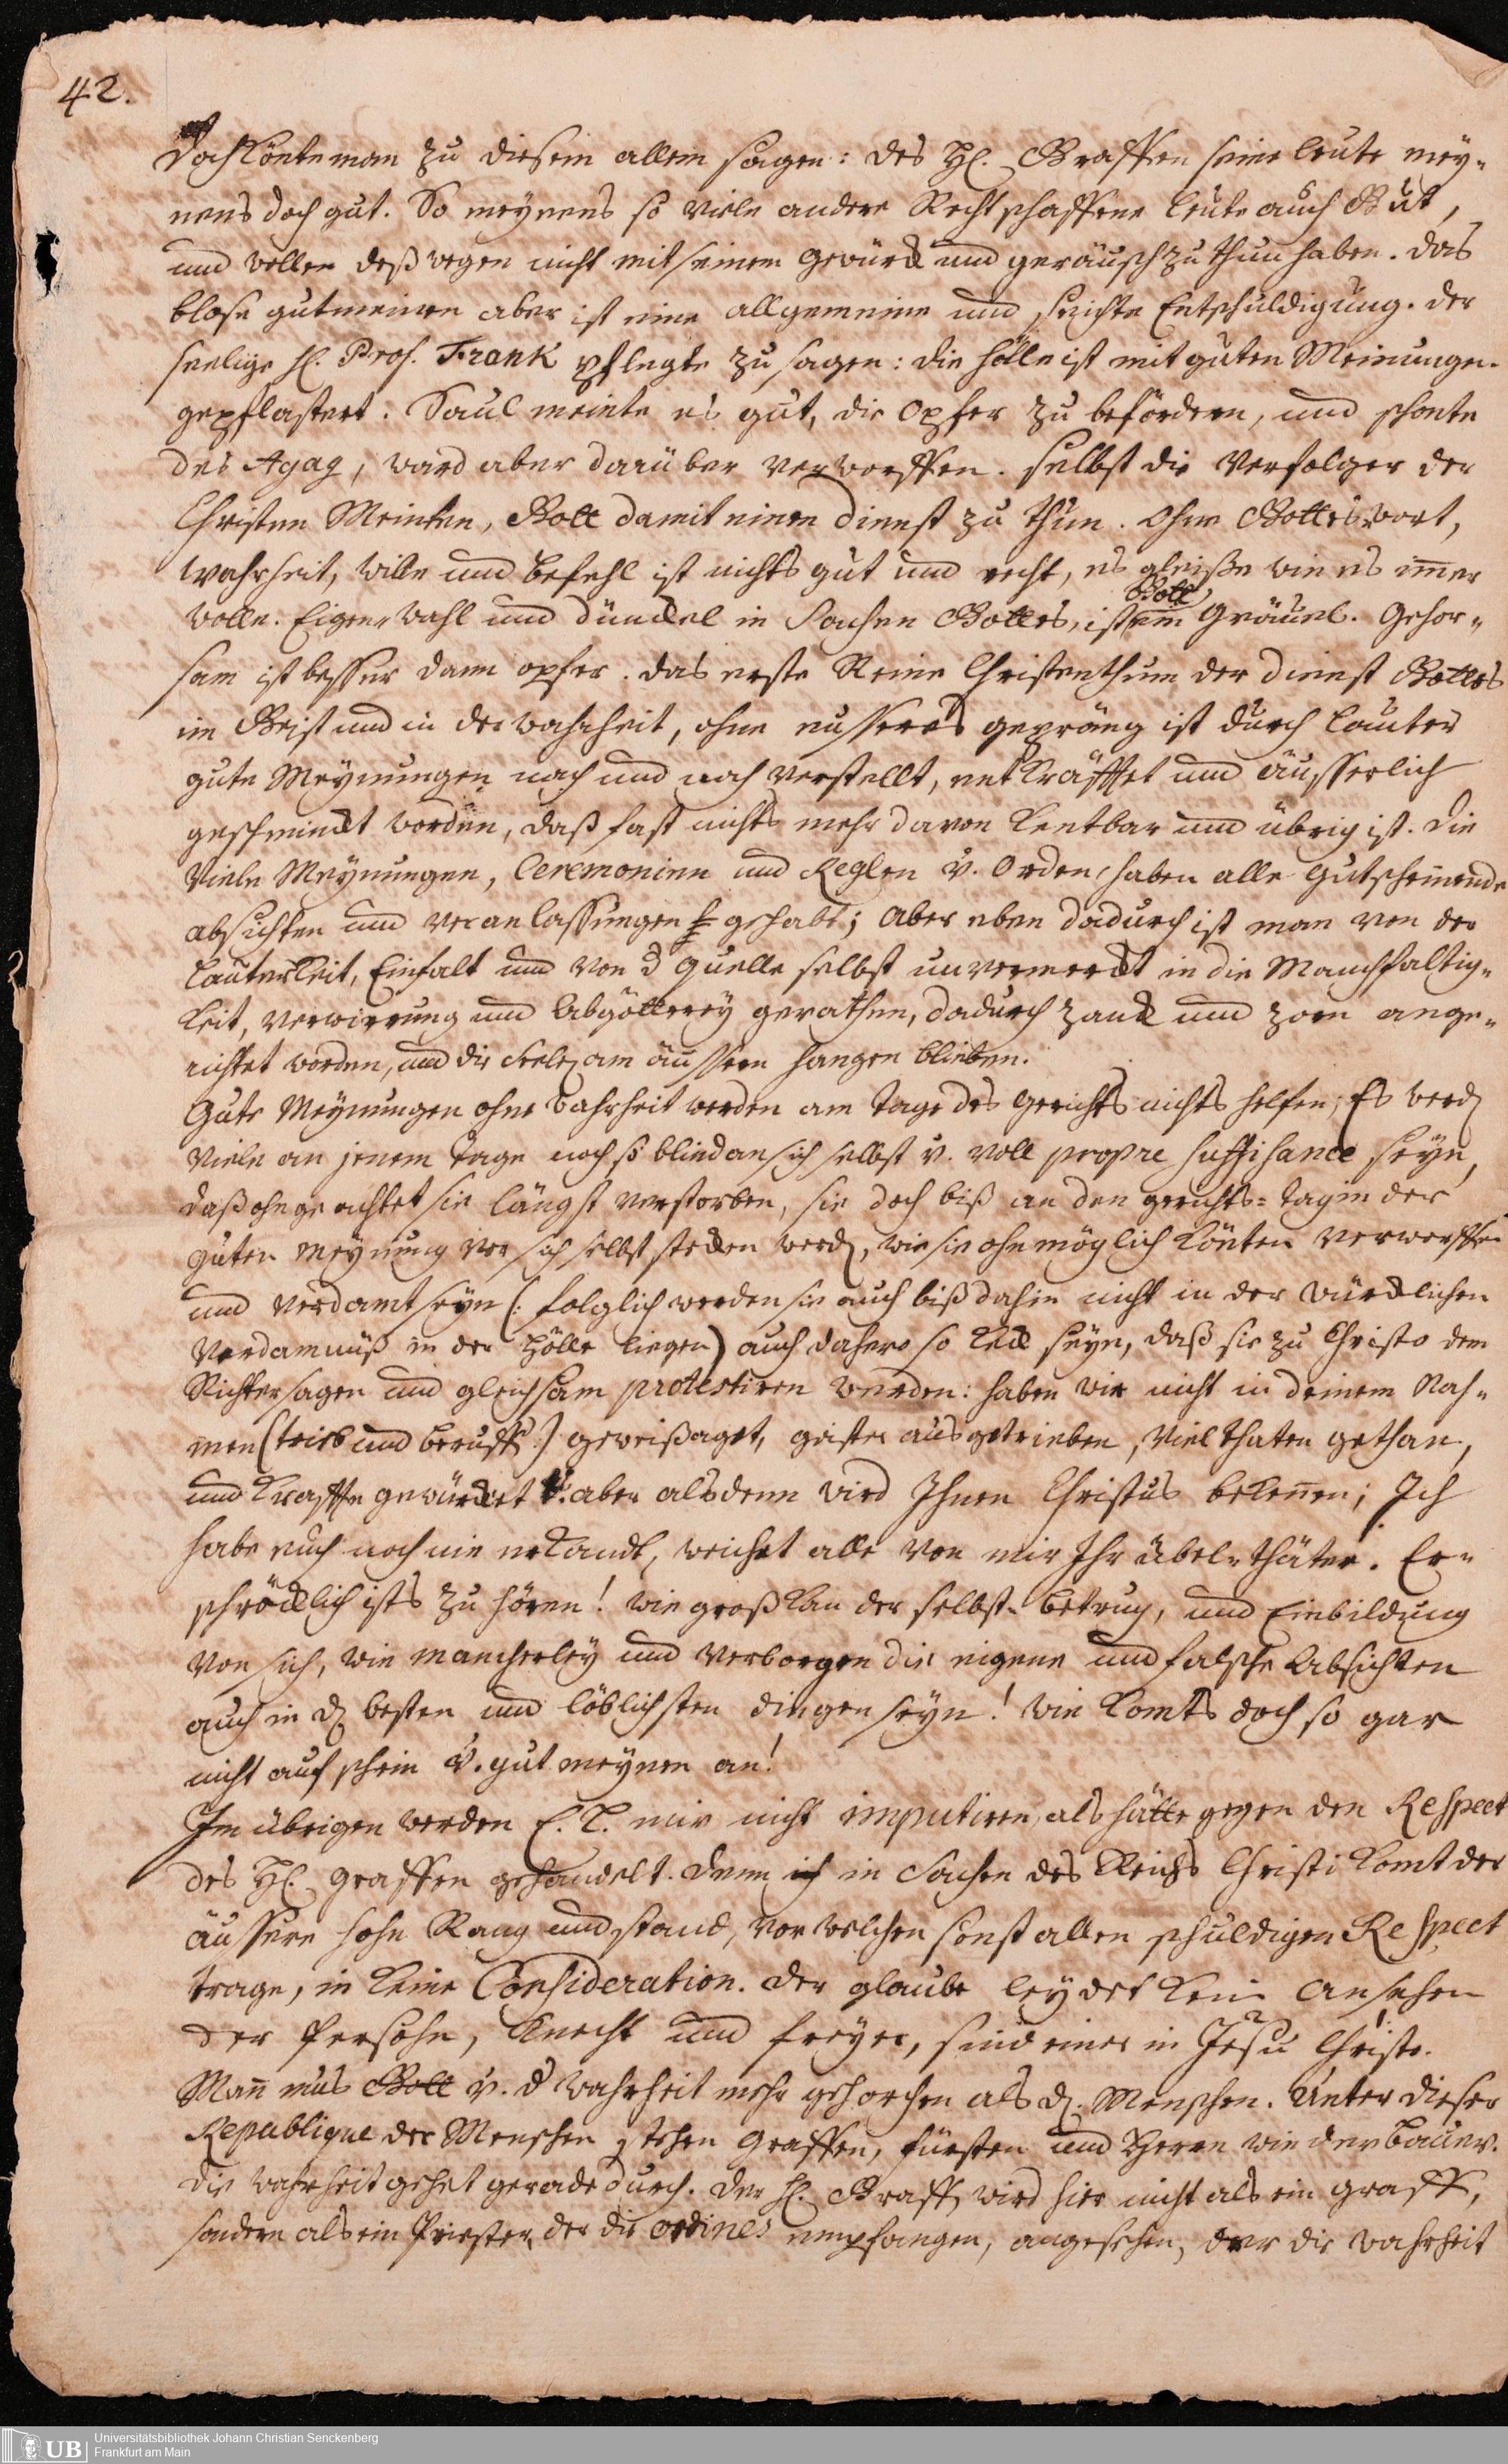 42.
Doch könte man zu diesem allem sagen: des H. Graffen seine leute mey-
nens doch gut. So meynens so viele andere Rechtschaffene leute auch Gut,
und wollen deßwegen nicht mit seinem gewürck und geräusch zu thun haben. das
blose gutmeinen aber ist eine allgemeine und seichte Entschuldigung. der
seelige H. Prof. Frank pflegte zu sagen: die hölle ist mit guten Meinungen
gepflastert. Saul meinte es gut, die opfer zu befördern, und schonte
des Agag, ward aber darüber verworffen. selbst die Verfolger der
Christen Meinten, Gott damit einen dienst zu thun. Ohne Gottes wort,
wahrheit, wille und befehl ist nichts gut und recht, es gleiße wie es immer
Gott
wolle. Eigen-wahl und dünckel in Sachen Gottes, ist ein Gräuel. Gehor-
sam ist besser dann opfer. das erste Reine Christenthum der dienst Gottes
im Geist und in der wahrheit, ohne eusseres gepräng ist durch lauter
gute Meynungen nach und nach verstellt, entkräfftet und äusserlich
geschminckt worden, daß fast nichts mehr davon kentbar und übrig ist. die
Viele Meynungen, Ceremonien und Reglen u. Orden, haben alle gutscheinende
absichten und veranlassungen gehabt; aber eben dadurch ist man von der
lauterkeit, Einfalt und von d quelle selbst unvermerckt in die Manchfaltig-
keit, verwirrung und Abgötterey gerathen, dadurch zanck und zorn ange-
richtet worden, und die Seelen am äussern hangen blieben.
Gute Meynungen ohne wahrheit werden am tage des gerichts nichts helfen; Es werden
viele an jenem tage noch so blind an sich selbst u. voll propre suffisance seyn,
daß ohngeachtet sie längst verstorben, sie doch biß an den gerichts-tag in der
guten meynung von sich selbst stecken werden, wie sie ohnmöglich könten verworffen
und verdamt seyn (: folglich werden sie auch biß dahin nicht in der würcklichen
Verdamnuß in der Hölle liegen) auch dahero so keck seyn, daß sie zu Christo dem
Richter sagen und gleichsam protestiren werden: haben wir nicht in deinem Nah-
men (trieb und beruff:) geweißaget, geister ausgetrieben, viel thaten gethan,
und kraffte gewürcket. aber alsdenn wird Ihnen Christus bekennen; Ich
habe euch noch nie erkandt, weichet alle von mir Ihr übel-thäter. Er-
schröcklich ists zu hören! wie groß kan der selbst-betrug, und Einbildung
von sich, wie mancherley und verborgen die eigene und falsche absichten
auch in den besten und löblichsten dingen seyn! wie komts doch so gar
nicht auf schein u. gut meynen an!
Im übrigen werden E. L. mir nicht imputiren, als hätte gegen den Respect
des H. graffen gehandelt. denn in Sachen des Reichs Christi komt der
äussere hohe Rang und stand, vor welchen sonst allen schuldigen Respect
trage, in keine Consideration. der glaube leydet kein ansehen
der Persohn, knecht und freyer, sind einer in Jesu Christo.
Mann mus Gott u. d wahrheit mehr gehorchen als den Menschen. Unter dieser
Republique der Menschen stehen graffen, fürsten und Herren wie der bauer.
die wahrheit gehet gerade durch. der H. Graff wird hier nicht als ein graff,
sondern als ein Priester, der die ordines empfangen, angesehen, der die wahrheit
UB
Universitätsbibliothek Johann Christian Senckenberg
Frankfurt am Main